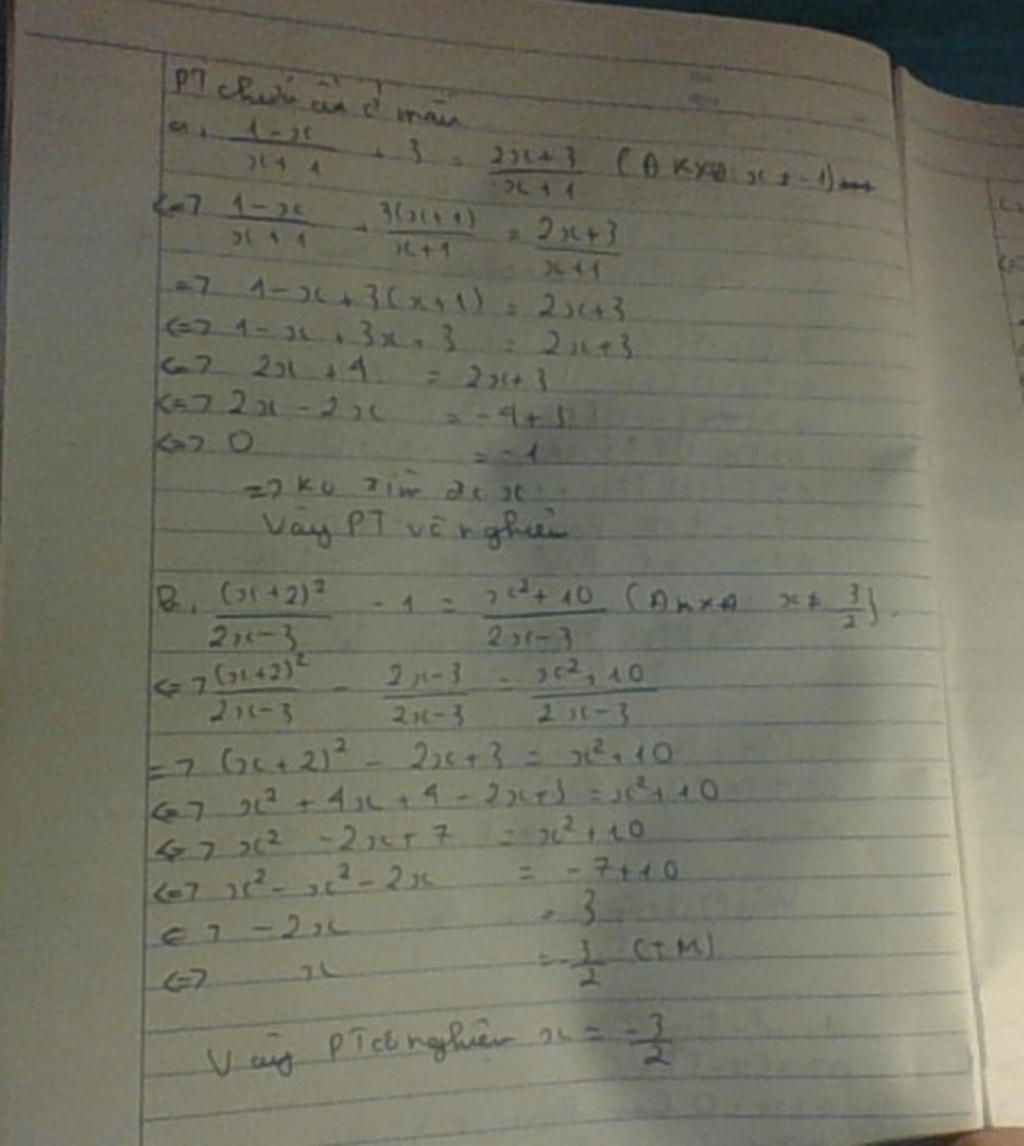 PT chứa ẩn ở mẫu
a, \frac{1-x}{x+1} + 3 = \frac{2x+3}{x+1} (ĐKXĐ: x ≠ -1)
<=> \frac{1-x}{x+1} + \frac{3(x+1)}{x+1} = \frac{2x+3}{x+1}
=> 1-x+3(x+1) = 2x+3
<=> 1-x+3x+3 = 2x+3
<=> 2x+4 = 2x+3
<=> 2x-2x = -4+3
<=> 0 = -1
=> x
Vậy PT vô nghiệm
B, \frac{(x+2)^2}{2x-3} - 1 = \frac{x^2+10}{2x-3} (ĐKXĐ x ≠ \frac{3}{2})
<=> \frac{(x+2)^2}{2x-3} - \frac{2x-3}{2x-3} = \frac{x^2+10}{2x-3}
=> (x+2)^2 - 2x+3 = x^2+10
<=> x^2+4x+4-2x+3 = x^2+10
<=> x^2 -2x+7 = x^2+10
<=> x^2-x^2-2x = -7+10
<=> -2x = 3
<=> x = -\frac{3}{2} (TM)
Vậy PT có nghiệm x = -\frac{3}{2}